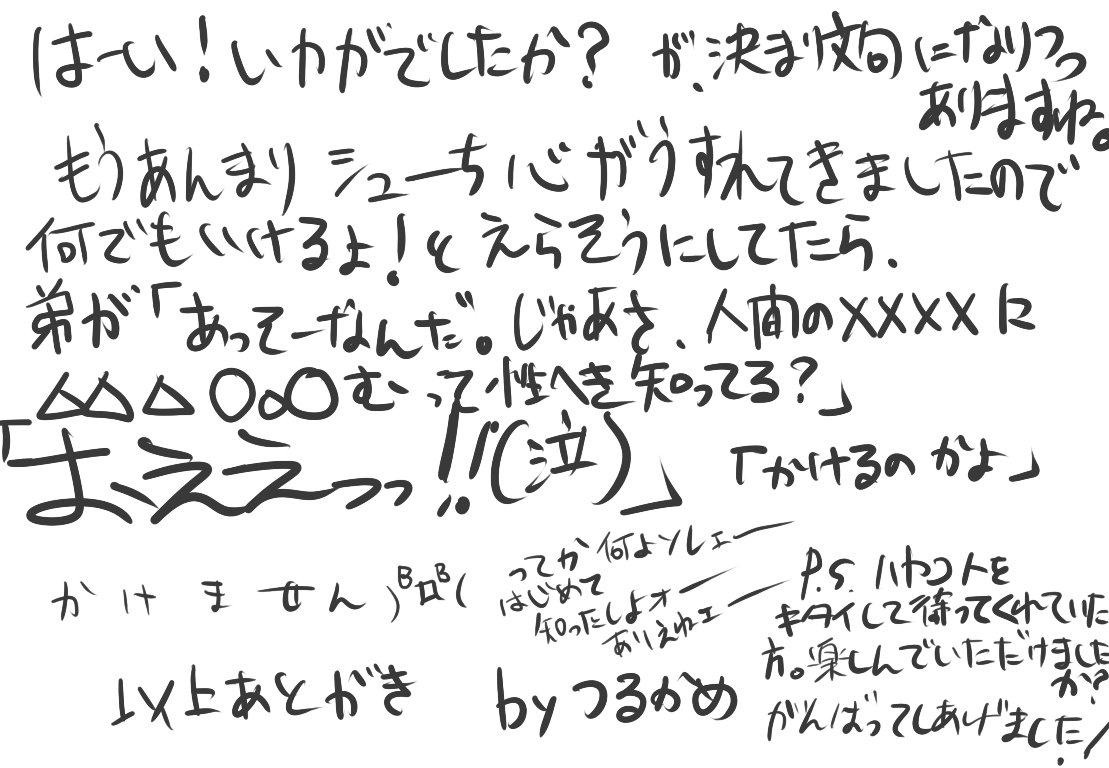 はーい！いかがでしたか？ が、決まり文句になりつつ
ありますね。
もうあんまりシューち心がうすれてきましたので
何でもいけるよ！とえらそうにしてたら、
弟が「あってーなんだ。じゃあさ、人間のXXXXに
△△△○○○むって性へき知ってる？」
「よええっっ!!(泣)」 「かけるのかよ」
かけません)
ってか何よソレェー
はじめて
知ったしよォー
ありえねェー
以上あとがき byつるかめ
P.S. ハヤコトを
キタイして待ってくれていた
方。楽しんでいただけました
か？
がんばってしあげました！